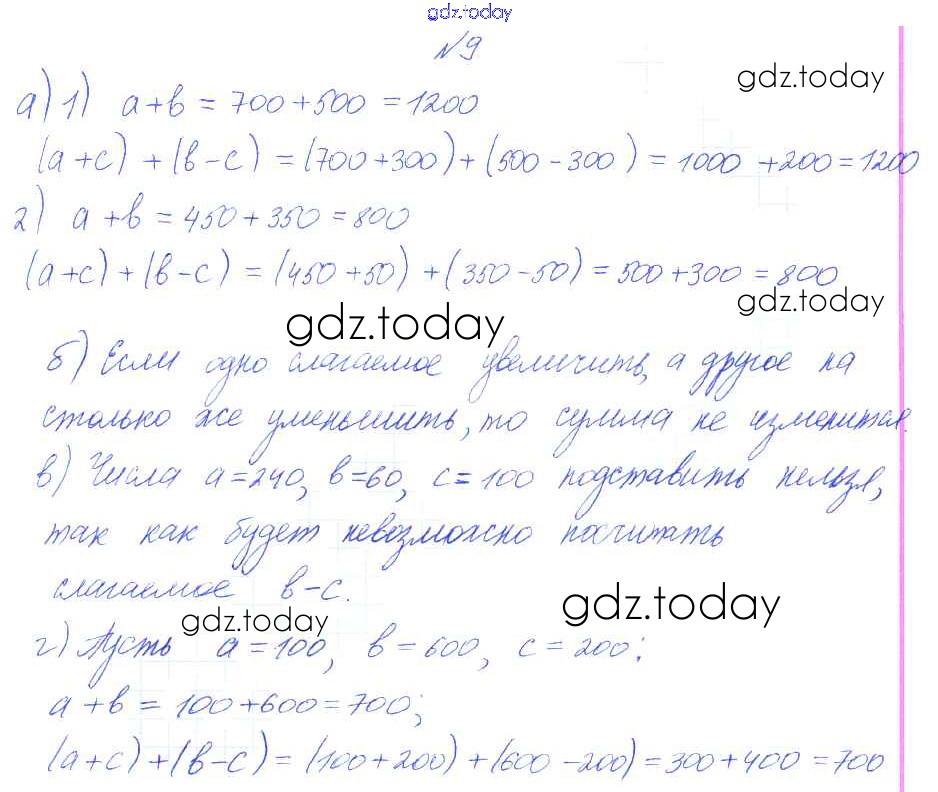 gdz.today
№9
gdz.today
а) 1) a+b = 700+500 = 1200
(a+c) + (b-c) = (700+300)+(500-300) = 1000+200=1200
2) a+b = 450+350 = 800
(a+c) + (b-c) = (450+50) + (350-50) = 500+300 = 800
gdz.today
gdz.today
б) Если одно слагаемое увеличить, а другое на
столько же уменьшить, то сумма не изменится.
в) Числа a=240, b=60, c=100 подставить нельзя,
так как будет невозможно посчитать
слагаемое b-c.
gdz.today
gdz.today
г) Пусть a=100, b=600, c=200;
a+b = 100+600=700;
(a+c)+(b-c) = (100+200)+(600-200)=300+400=700